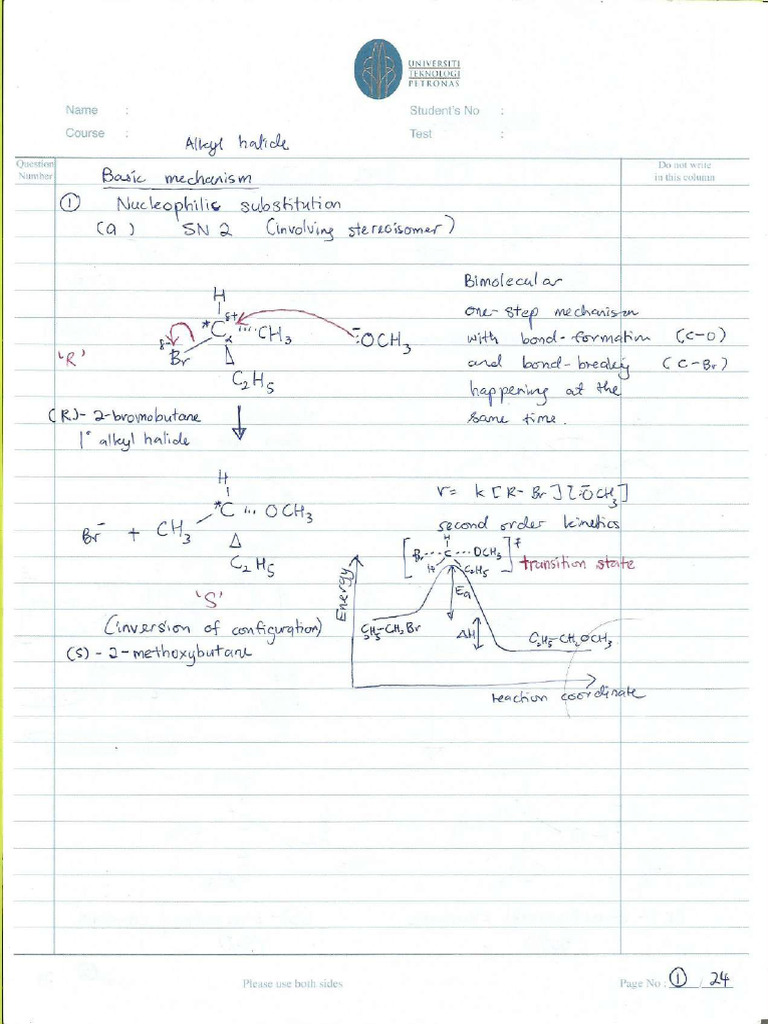 UNIVERSITI
TEKNOLOGI
PETRONAS
Name :
Student's No :
Course :
Test :
Alkyl halide
Question
Number
Do not write
in this column
Basic mechanism
① Nucleophilic substitution
(a) SN 2 (involving stereoisomer)
Bimolecular
one-step mechanism
with bond-formation (C-O)
and bond-breakig (C-Br)
happening at the
same time.
H
δ+
*C α ''' CH3
δ- Br
C2H5
-:OCH3
'R'
(R)- 2-bromobutane
1° alkyl halide
H
*C ''' OCH3
Br- + CH3
C2H5
'S'
(inversion of configuration)
(S) - 2-methoxybutane
r = k [R-Br][-:OCH3]
second order kinetics
H
[Br---C---OCH3]‡
C2H5
transition state
Energy
Ea
ΔH
C2H5-CH2Br
C2H5-CH2OCH3
reaction coordinate
Please use both sides
Page No : ① / 24